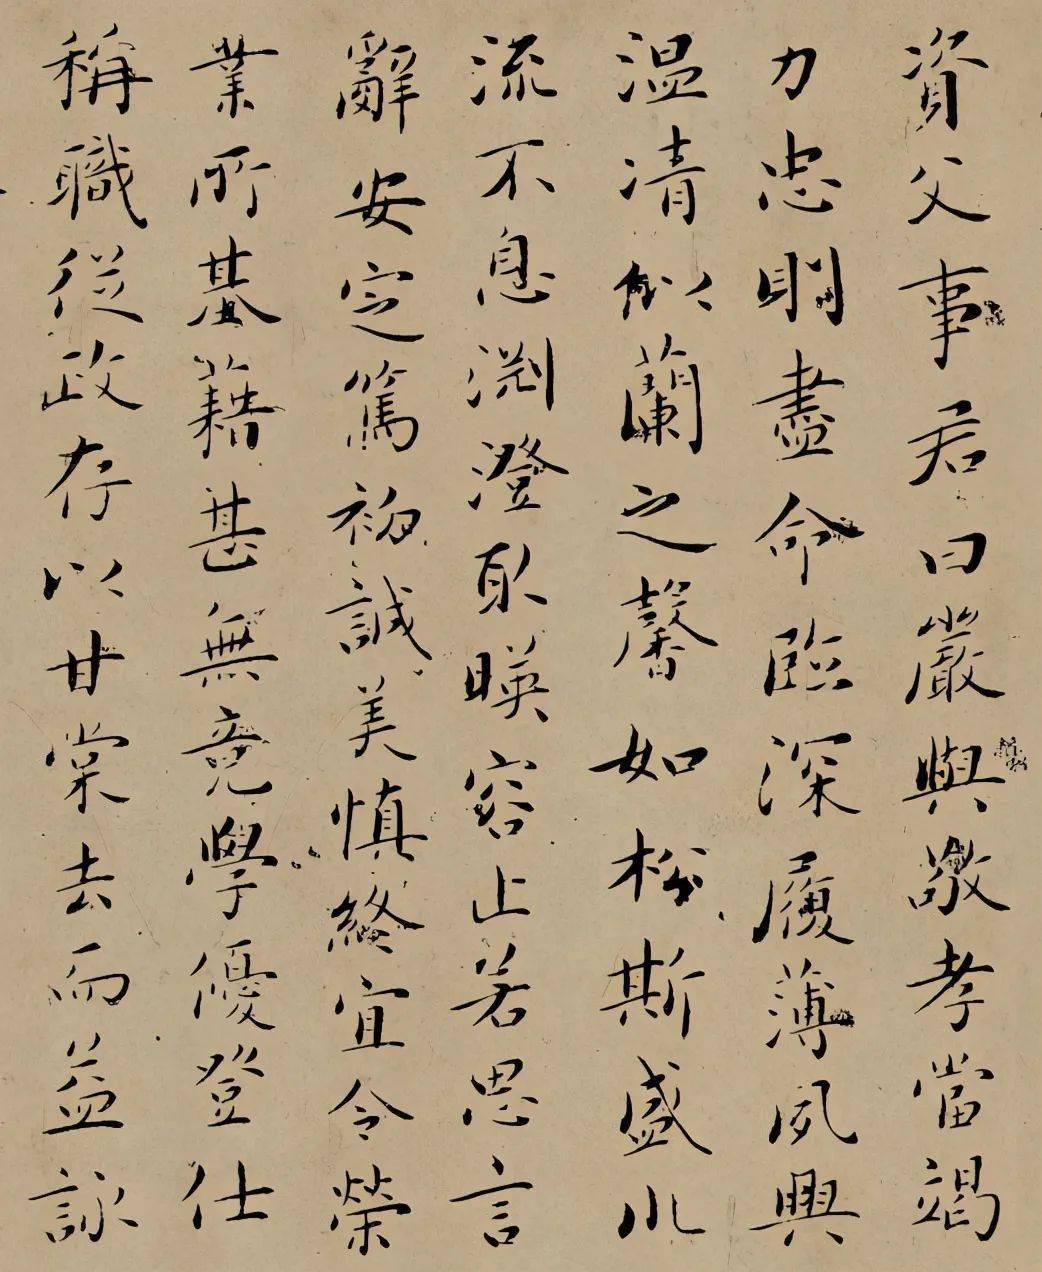 資父事君曰嚴與敬孝當竭
力忠則盡命臨深履薄夙興
温清似蘭之馨如松斯盛川
流不息淵澄取暎容止若思言
辭安定篤初誠美慎終宜令榮
業所基藉甚無竟學優登仕
稱職從政存以甘棠去而益詠